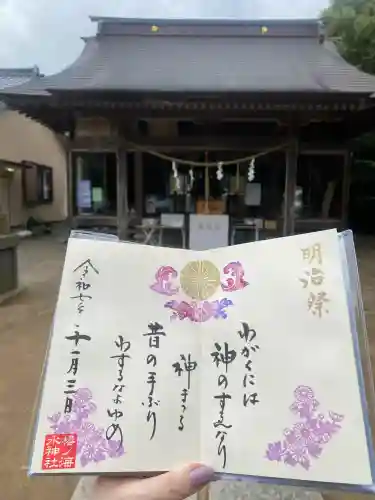 明治祭
わがくには
神のすゑなり
神まつる
昔の手ぶり
わするなよゆめ
令和七年
十一月三日
櫻ノ海
水神社